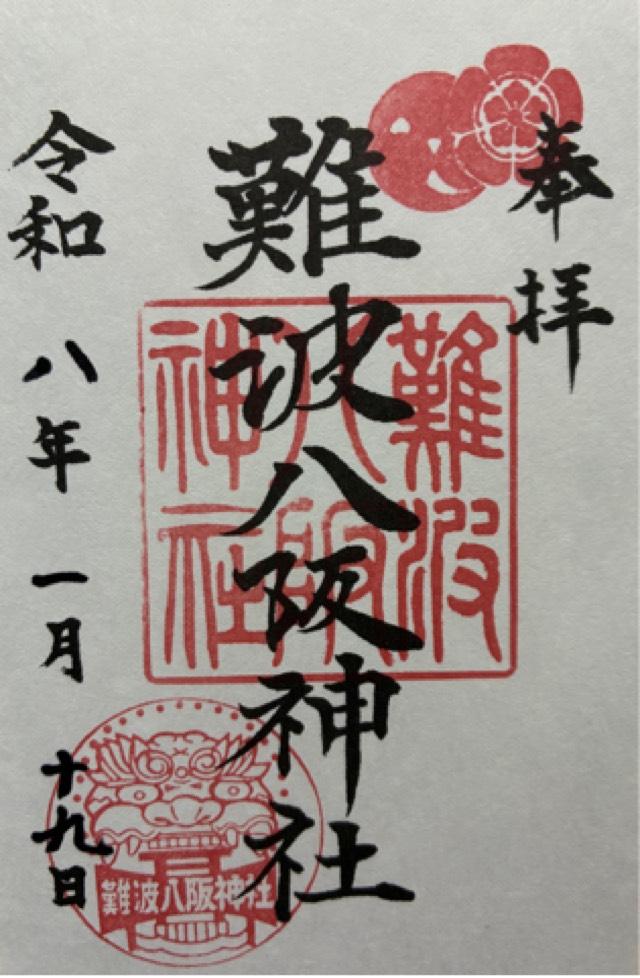 奉拝
難波八阪神社
難波八阪神社
令和八年一月十九日
難波八阪神社